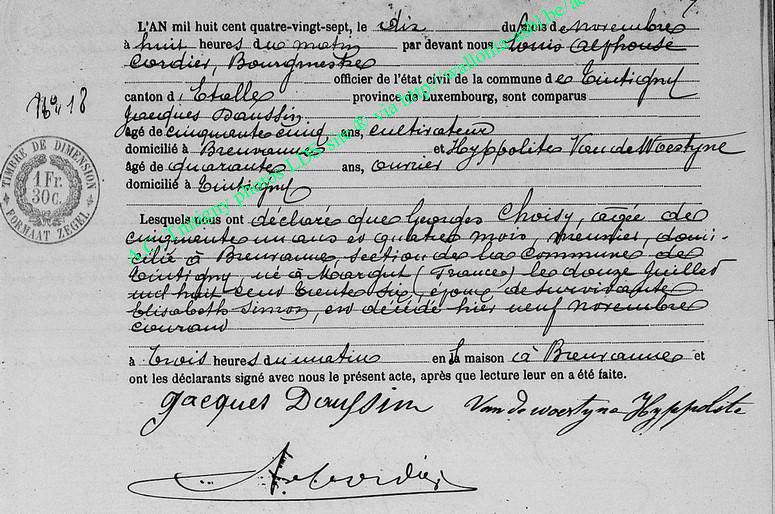 L'AN mil huit cent quatre-vingt-sept, le dix du mois de Novembre
à huit heures du matin par devant nous Louis Alphonse
Cordier, Bourgmestre
officier de l'état civil de la commune de Tintigny
N° 18
canton d' Etalle province de Luxembourg, sont comparus
Jacques Daussin
âgé de cinquante cinq ans, cultivateur
domicilié à Breuvanne et Hyppolite Van de Woestyne
âgé de quarante ans, ouvrier
domicilié à Tintigny
TIMBRE DE DIMENSION
1 Fr.
30 c.
FORMAAT ZEGEL
Lesquels nous ont déclaré que Georges Choisy, âgée de
cinquante un ans et quatre mois, meunier, domi-
cilié à Breuvanne, section de la commune de
Tintigny, né à Margut (France) le douze Juillet
mil huit cent trente six, époux de survivante
Elisabeth Simon, est décédé hier neuf novembre
courant
à trois heures du matin en la maison à Breuvanne et
ont les déclarants signé avec nous le présent acte, après que lecture leur en a été faite.
Jacques Daussin Van de woestyne Hyppolite
A.C. Tintigny photos LDS site ® via http://